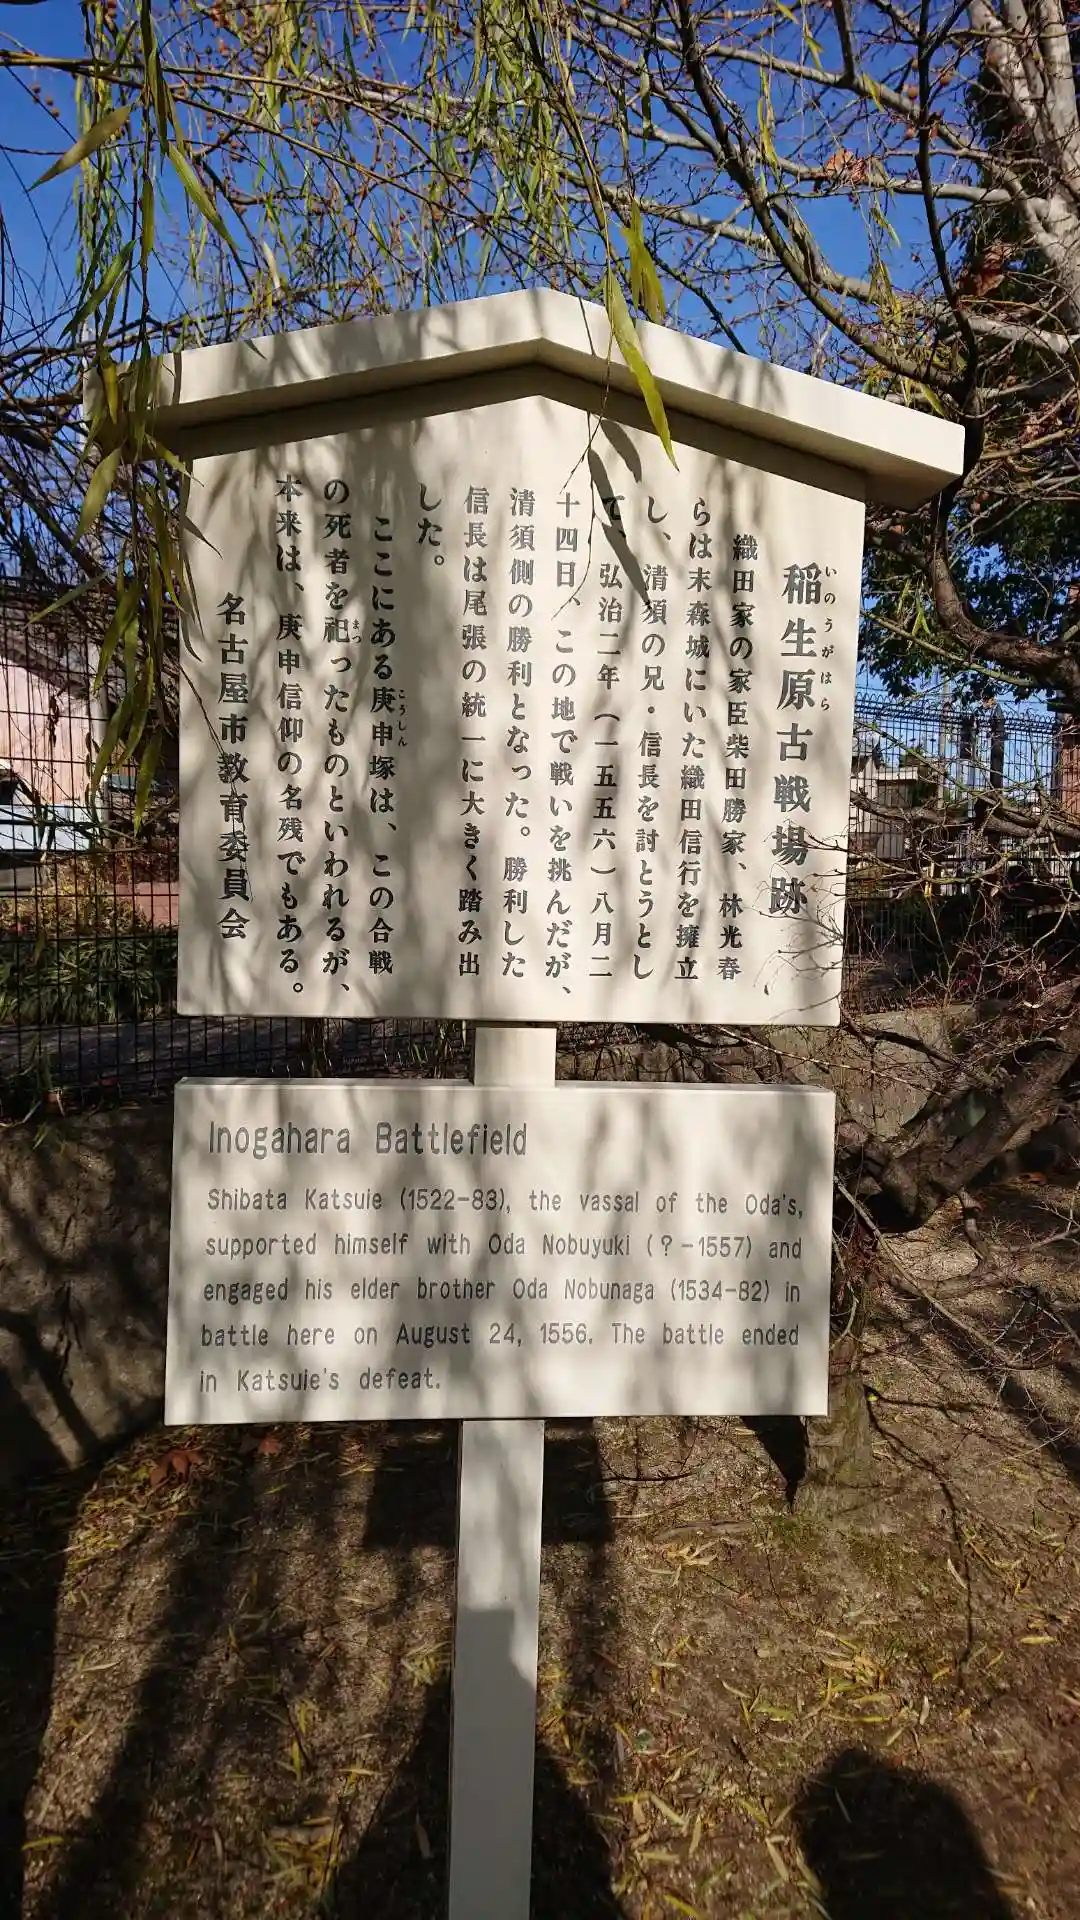 稲生原古戦場跡
いのうがはら
織田家の家臣柴田勝家、林光春
らは末森城にいた織田信行を擁立
し、清須の兄・信長を討とうとし
て、弘治二年（一五五六）八月二
十四日、この地で戦いを挑んだが、
清須側の勝利となった。勝利した
信長は尾張の統一に大きく踏み出
した。
ここにある庚申塚は、この合戦
こうしん
の死者を祀ったものといわれるが、
まつ
本来は、庚申信仰の名残でもある。
名古屋市教育委員会
Inogahara Battlefield
Shibata Katsuie (1522-83), the vassal of the Oda's,
supported himself with Oda Nobuyuki (?-1557) and
engaged his elder brother Oda Nobunaga (1534-82) in
battle here on August 24, 1556. The battle ended
in Katsuie's defeat.